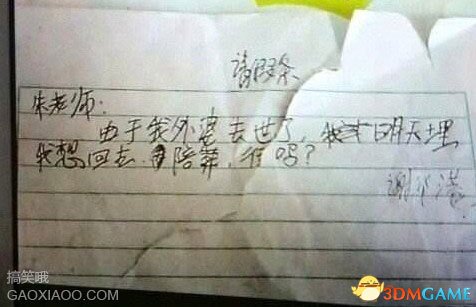 请假条
朱老师:
由于我外婆去世了,我 明天埋
我想回去 陪葬,行吗?
谢
搞笑哦
GAOXIAOO.COM
3DMGAME